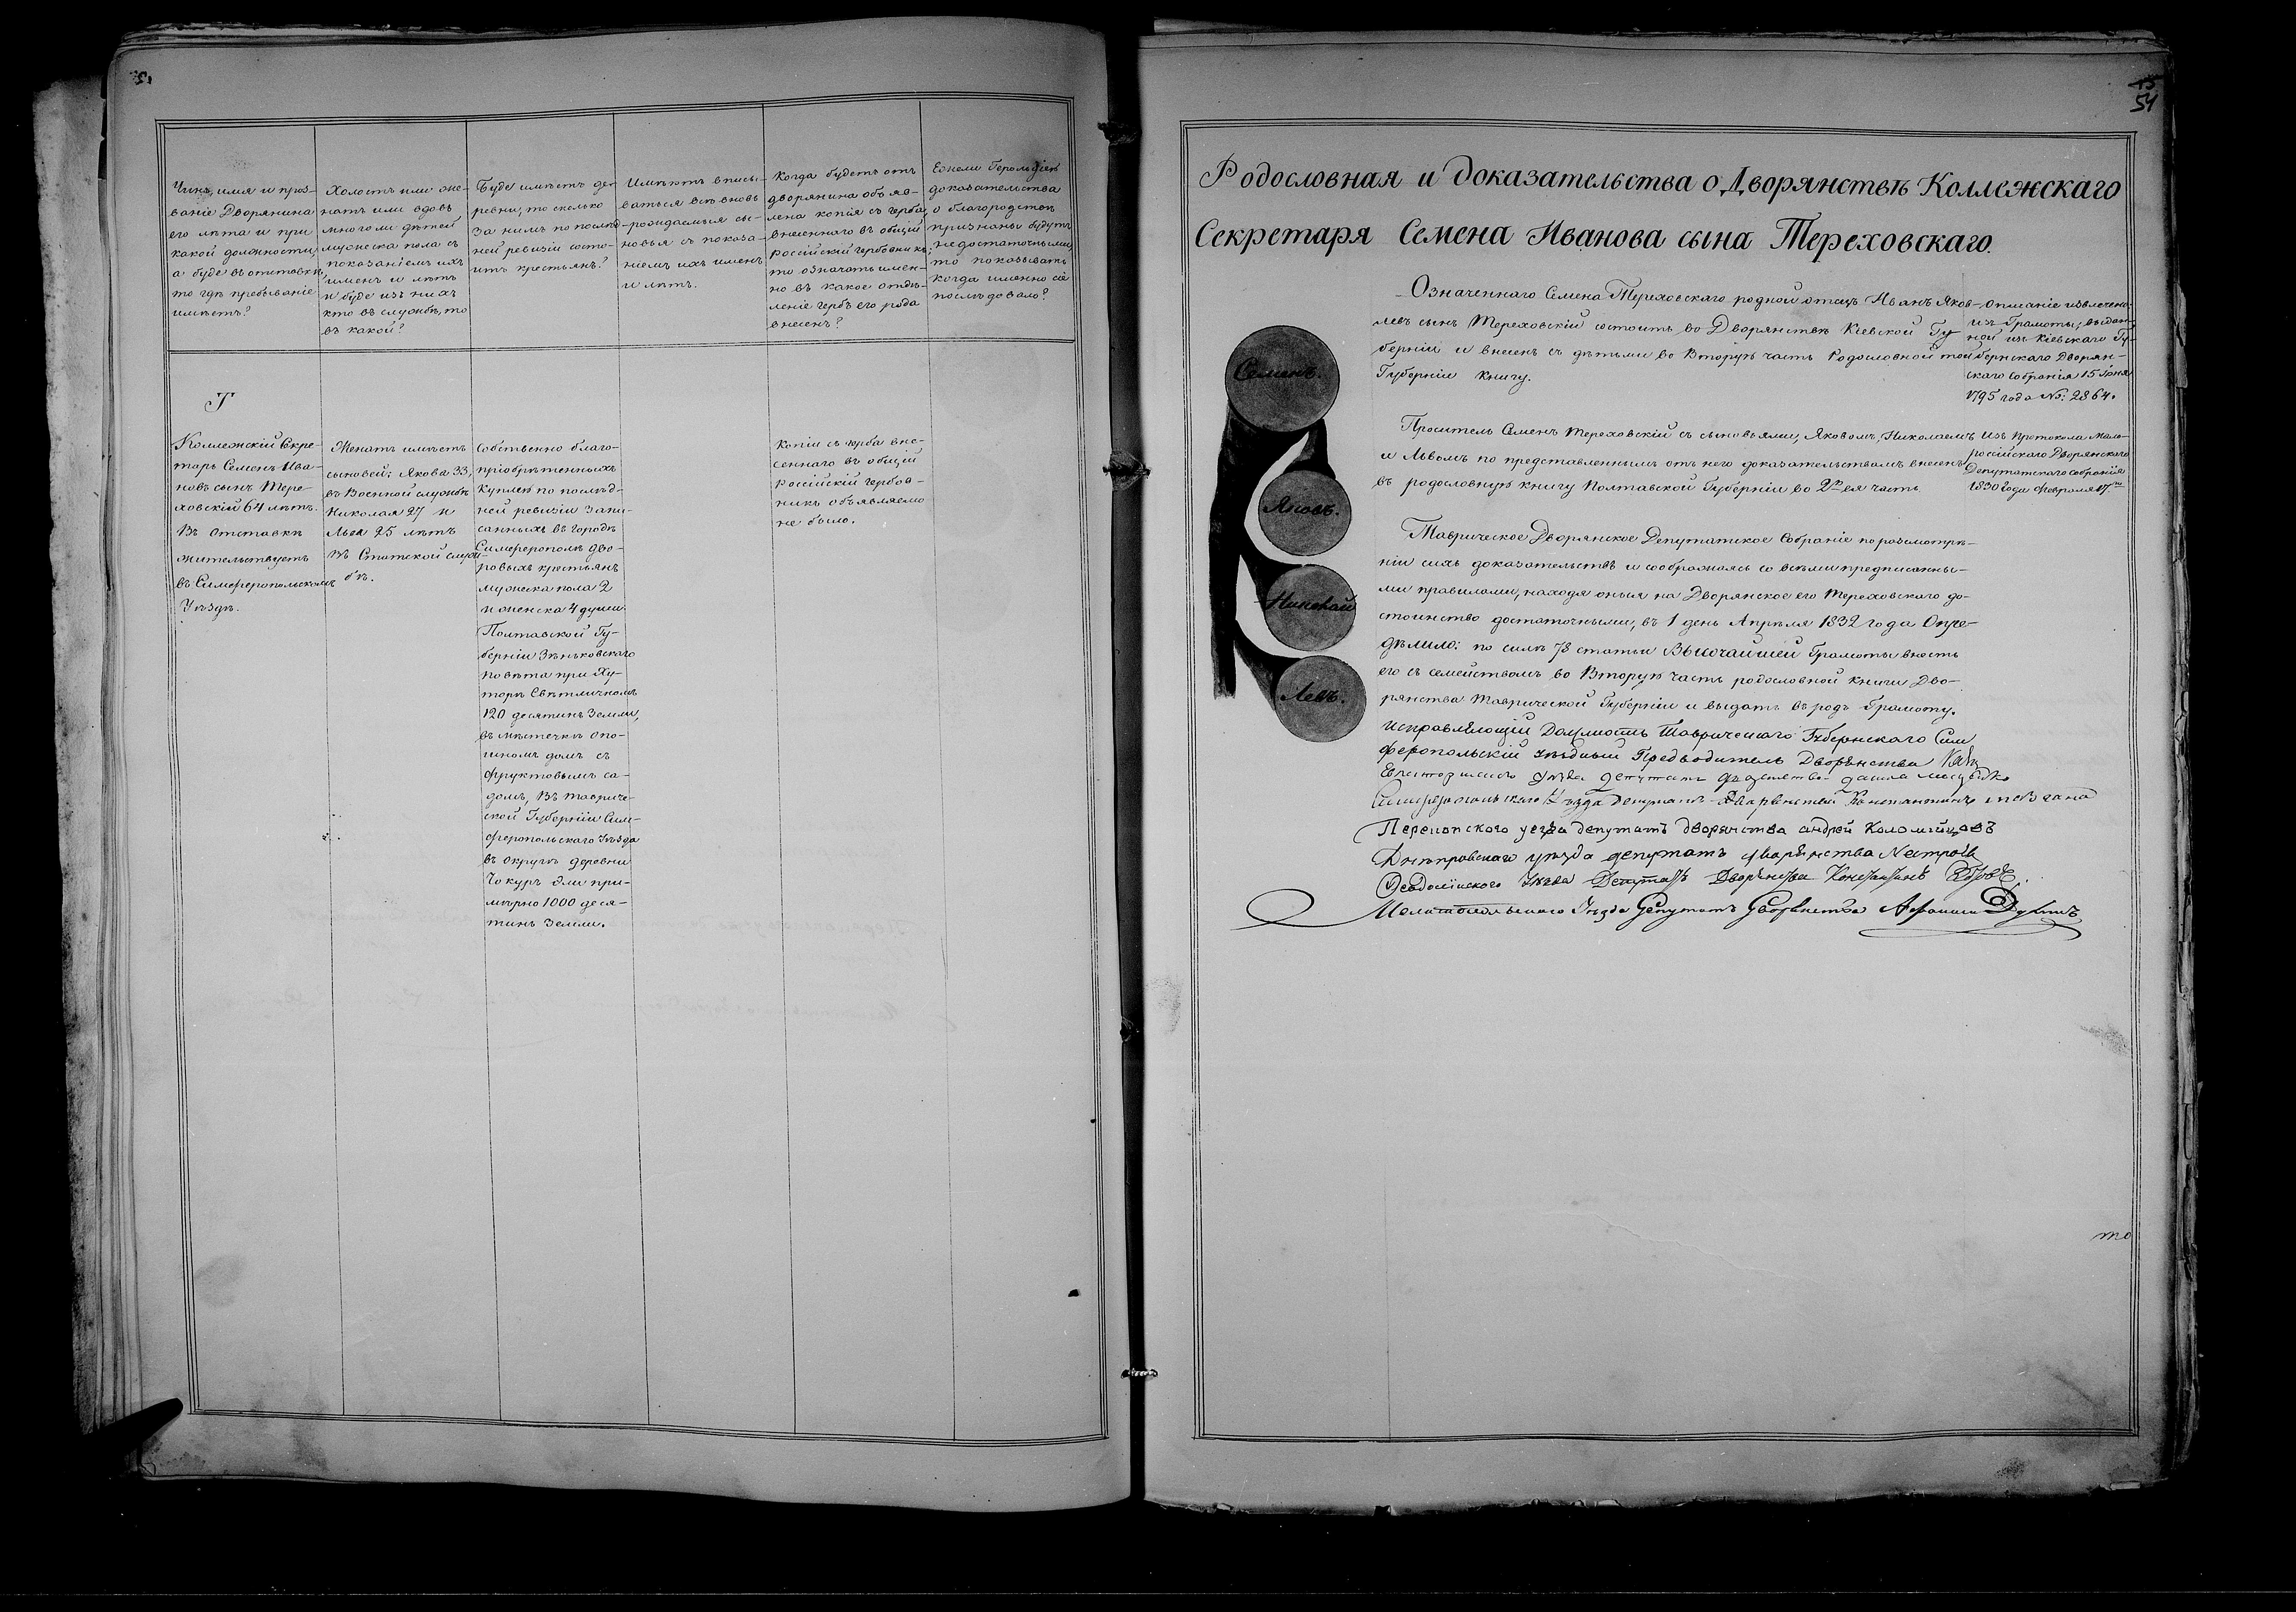 Чинъ, имя и проз-
ваніе Дворянина
его лѣта и при
какой должности,
а буде въ отставкѣ,
то гдѣ пребываніе
имѣетъ?
Холостъ или же-
натъ или вдовъ
много ли дѣтей
мужеска пола съ
показаніемъ ихъ
именъ и лѣтъ
и буде изъ нихъ
кто въ службѣ, то
въ какой?
Буде имѣетъ де-
ревни, то сколько
за нимъ по послѣд-
ней ревизіи состо-
итъ крестьянъ?
Имѣютъ вписы-
ваться всѣ вновь
рождаемыя сы-
новья съ показа-
ніемъ ихъ именъ
и лѣтъ.
Когда будетъ отъ
дворянина объяв-
лена копія съ герба,
внесеннаго въ общій
россійскій гербовникъ,
то означать имен-
но въ какое отдѣ-
леніе гербъ его рода
внесенъ?
Ежели Герольдіею
доказательства
о благородствѣ
признаны будутъ
недостаточными,
то показывать
когда именно сіе
послѣдовало?
Т
Коллежскій Секре-
тарь Семенъ Ива-
новъ сынъ Тере-
ховскій 64 лѣтъ.
Въ отставкѣ
жительствуетъ
въ Симферопольскомъ
Уѣздѣ.
Женатъ имѣетъ
сыновей: Якова 33,
въ Военной службѣ
Николая 27 и
Льва 25 лѣтъ
въ Статской служ-
бѣ.
Собственно благо-
пріобрѣтенныхъ
куплею по послѣд-
ней ревизіи запи-
санныхъ въ городѣ
Симферополѣ дво-
ровыхъ крестьянъ
мужеска пола 2
и женска 4 души
Полтавской Гу-
берніи Зѣньковскаго
повѣта при Ху-
торѣ Свѣтличномъ
120 десятинъ земли,
въ мѣстечкѣ Опо-
шномъ домъ съ
фруктовымъ са-
домъ, въ Тавриче-
ской Губерніи Сим-
феропольскаго Уѣзда
въ округѣ деревни
Чокуръ Эли при-
мѣрно 1000 деся-
тинъ земли.
Копіи съ герба вне-
сеннаго въ общій
Россійскій гербов-
никъ объявляемо
не было.
54
Родословная и доказательства о Дворянствѣ Коллежскаго
Секретаря Семена Иванова сына Тереховскаго.
Семенъ.
Яковъ.
Николай
Левъ.
Означеннаго Семена Тереховскаго родной отецъ Иванъ Яков-
левъ сынъ Тереховскій состоитъ во Дворянствѣ Кіевской Гу-
берніи и внесенъ съ дѣтьми во Вторую часть Родословной той
Губерніи книгу.
Описаніе извлечено
изъ Грамоты, выдан-
ной изъ Кіевскаго Гу-
бернскаго Дворян-
скаго Собранія 15 Іюня
1795 года №: 2864.
Проситель Семенъ Тереховскій съ сыновьями, Яковомъ, Николаемъ
и Львомъ по представленнымъ отъ него доказательствамъ внесенъ
въ родословную книгу Полтавской Губерніи во 2ю ея часть.
Изъ протокола Мало-
россійскаго Дворянскаго
Депутатскаго собранія
1830 года Февраля 17
Таврическое Дворянское Депутатское Собраніе по розсмотрѣ-
ніи сихъ доказательствъ и соображаясь со всѣми предписанны-
ми правилами, находя оныя на Дворянское его Тереховскаго до-
стоинство достаточными, въ 1 день Апрѣля 1832 года Опре-
дѣлило: по силѣ 78 статьи Высочайшей Грамоты внесть
его съ семействомъ во Вторую часть родословной книги Дво-
рянства Таврической Губерніи и выдать въ родъ Грамоту.
исправляющій Должность Таврическаго Губернскаго Сим
феропольскій уѣздный Предводитель Дворянства
Евпаторискаго уѣзда депутатъ дворянства
Симферопольскаго Уѣзда депутатъ Дворянства Константинъ
Перекопского уезда депутатъ дворянства андрей Коломійцовъ
Днѣпровскаго уѣзда депутатъ дворянства Нестроевъ
Ѳеодосійского Уѣзда Депутатъ Дворянства Константинъ
Мелитопольскаго Уѣзда Депутатъ Дворянства
то